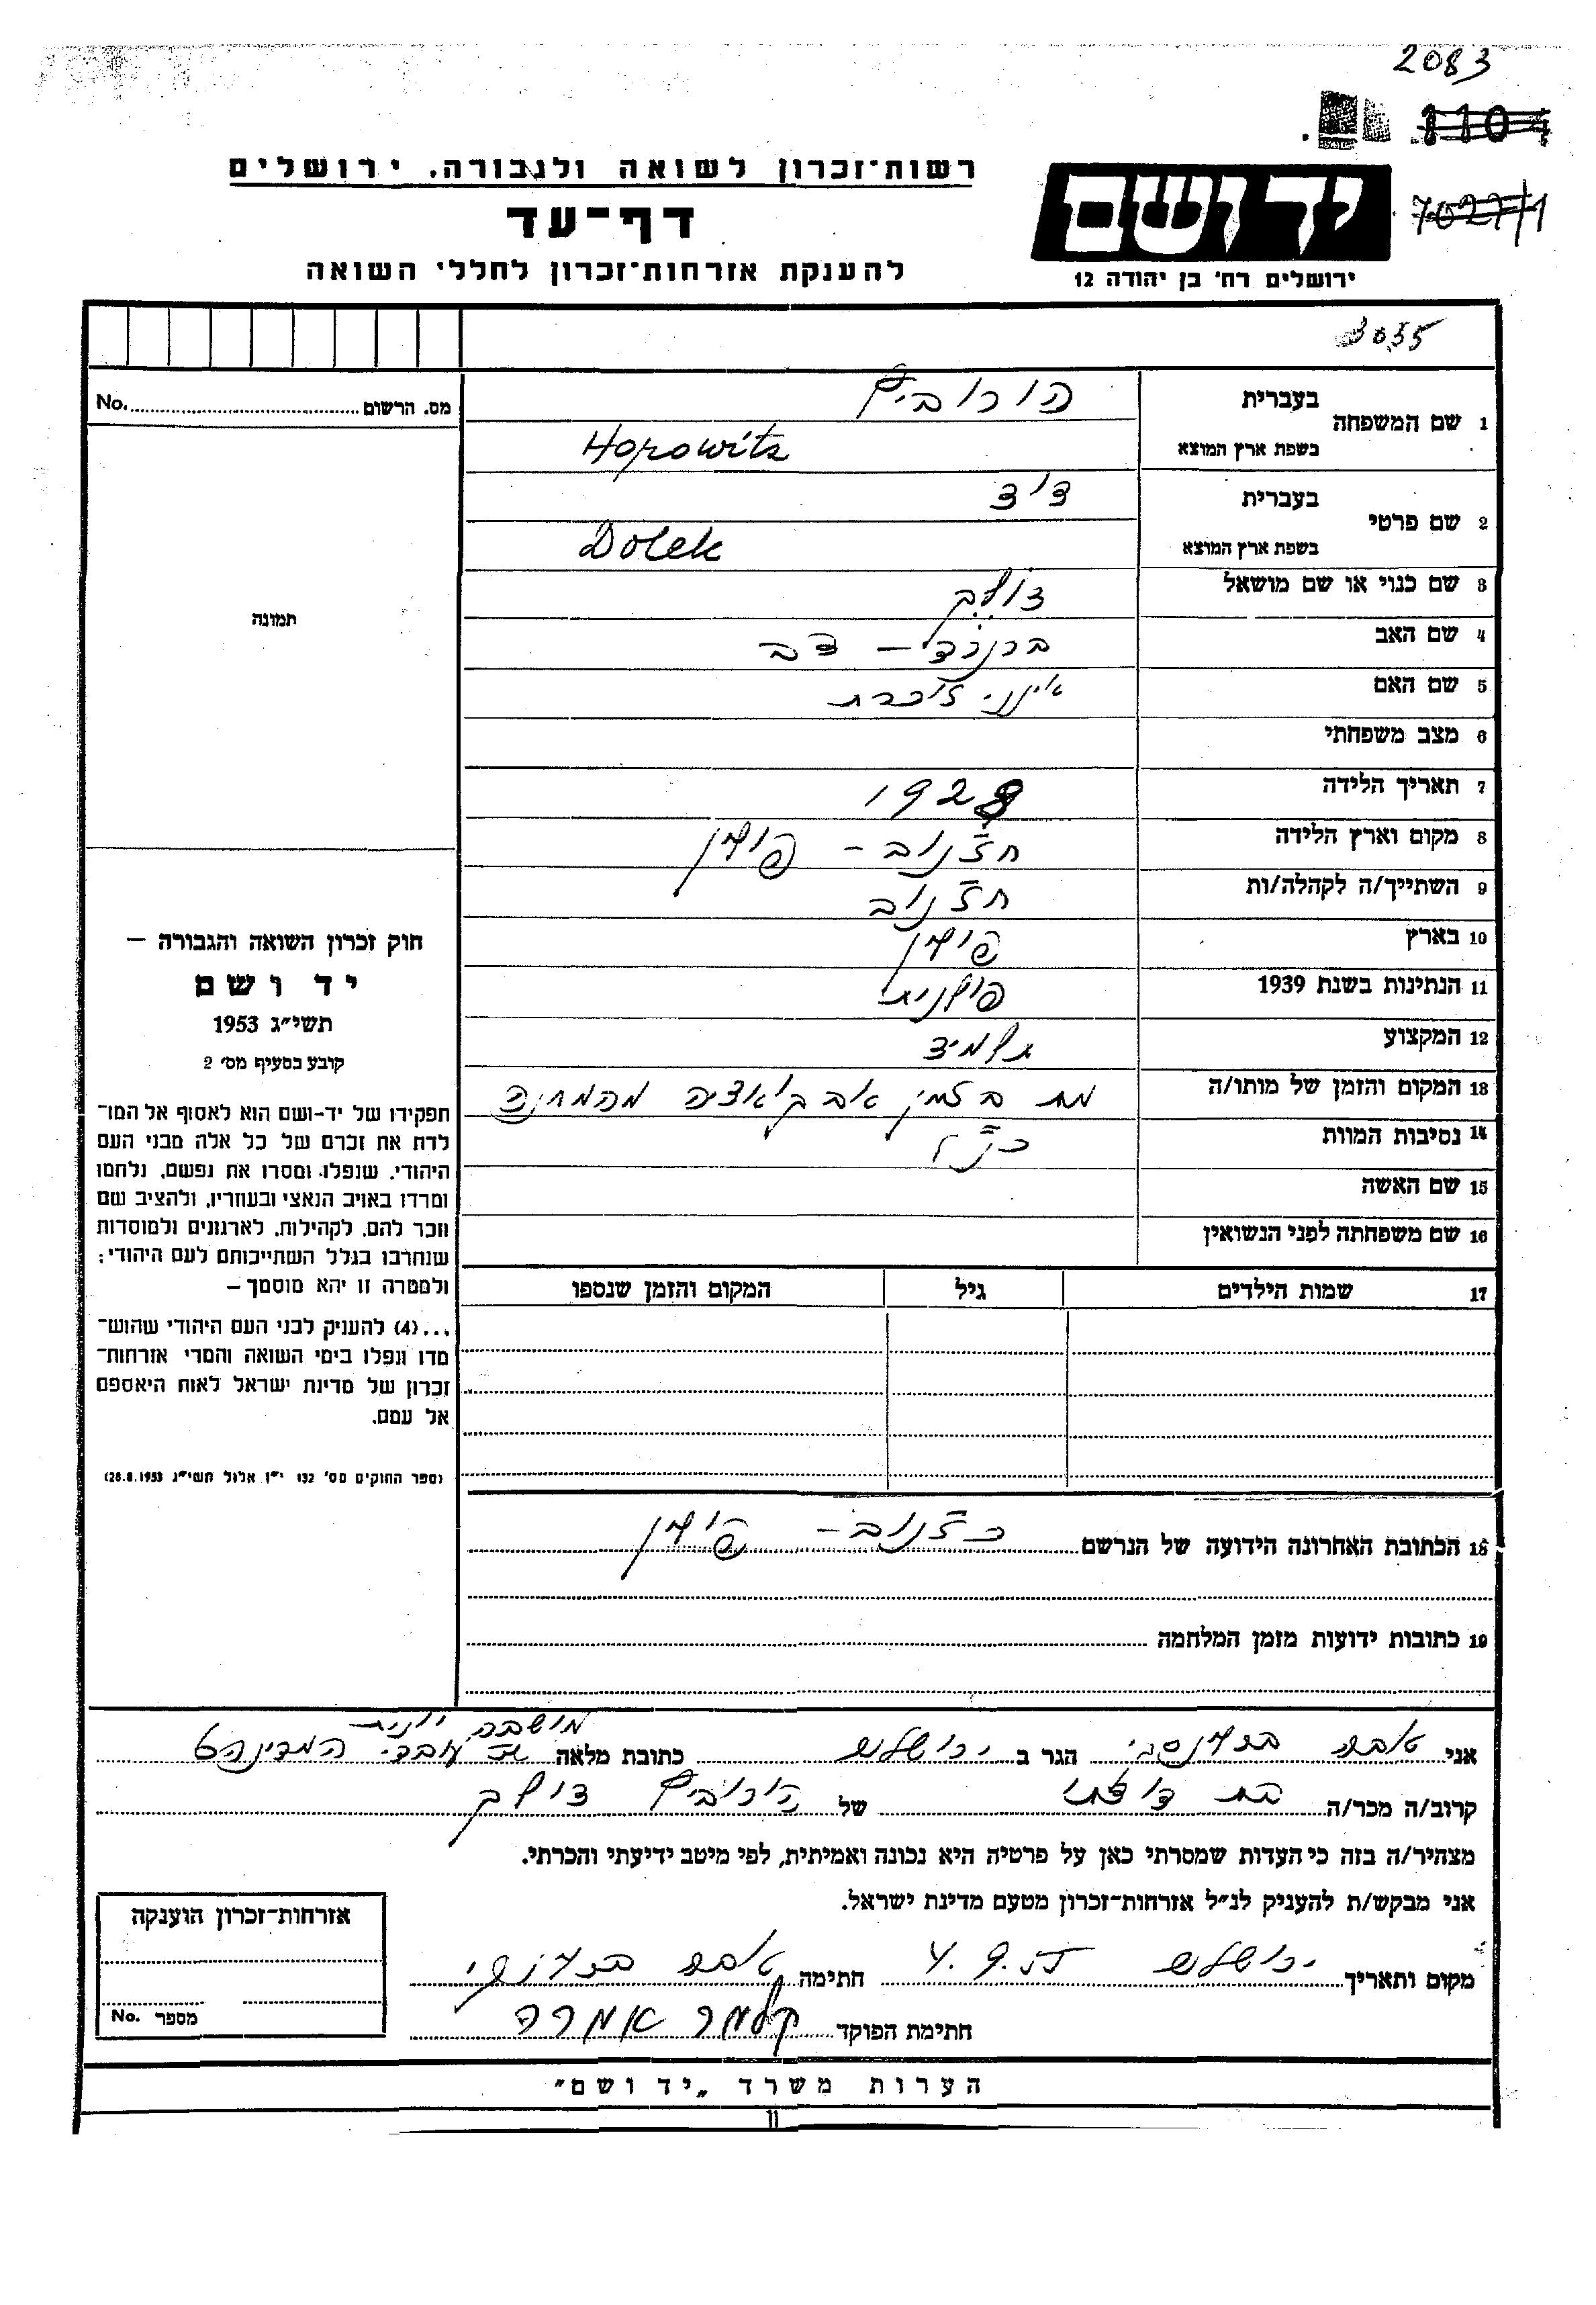 2083
1104
רשות־זכרון לשואה ולגבורה. ירושלים
דף־עד
להענקת אזרחות־זכרון לחללי השואה
יד ושם
7027/1
ירושלים רח' בן יהודה 12
3055
מס. הרשום No.
1 שם המשפחה
בעברית הורוביץ
בשפת ארץ המוצא Horowitz
2 שם פרטי
בעברית דוד
בשפת ארץ המוצא Dolek
3 שם כנוי או שם מושאל דולק
4 שם האב ברנרד – דב
5 שם האם אינני זוכרת
6 מצב משפחתי
7 תאריך הלידה 1928
8 מקום וארץ הלידה חז'נוב – פולין
9 השתייך/ה לקהלה/ות חז'נוב
10 בארץ פולין
11 הנתינות בשנת 1939 פולנית
12 המקצוע תלמיד
13 המקום והזמן של מותו/ה מת בזמן אבקואציה מהמחנה
14 נסיבות המוות
15 שם האשה
16 שם משפחתה לפני הנשואין
17 שמות הילדים גיל המקום והזמן שנספו
תמונה
חוק זכרון השואה והגבורה –
יד ושם
תשי"ג 1953
קובע בסעיף מס' 2
תפקידו של יד-ושם הוא לאסוף אל המו־
לדת את זכרם של כל אלה מבני העם
היהודי, שנפלו, ומסרו את נפשם, נלחמו
ומרדו באויב הנאצי ובעוזריו, ולהציב שם
וזכר להם, לקהילות, לארגונים ולמוסדות
שנחרבו בגלל השתייכותם לעם היהודי;
ולמטרה זו יהא מוסמך –
...(4) להעניק לבני העם היהודי שהוש־
מדו ונפלו בימי השואה והמרי אזרחות־
זכרון של מדינת ישראל לאות היאספם
אל עמם.
(ספר החוקים מס' 132 י"ז אלול תשי"ג 28.8.1953)
18 הכתובת האחרונה הידועה של הנרשם כז'נוב – פולין
19 כתובות ידועות מזמן המלחמה
מושבה יונית
אני הגר ב ירושלים כתובת מלאה עובדי המדינה
קרוב/ה מכר/ה בת דודתו של הורוביץ דולק
מצהיר/ה בזה כי העדות שמסרתי כאן על פרטיה היא נכונה ואמיתית, לפי מיטב ידיעתי והכרתי.
אני מבקש/ת להעניק לנ"ל אזרחות־זכרון מטעם מדינת ישראל.
מקום ותאריך ירושלים 4.9.55 חתימה
חתימת הפוקד קלמר אמרה
אזרחות־זכרון הוענקה
מספר No.
הערות משרד „יד ושם"
11